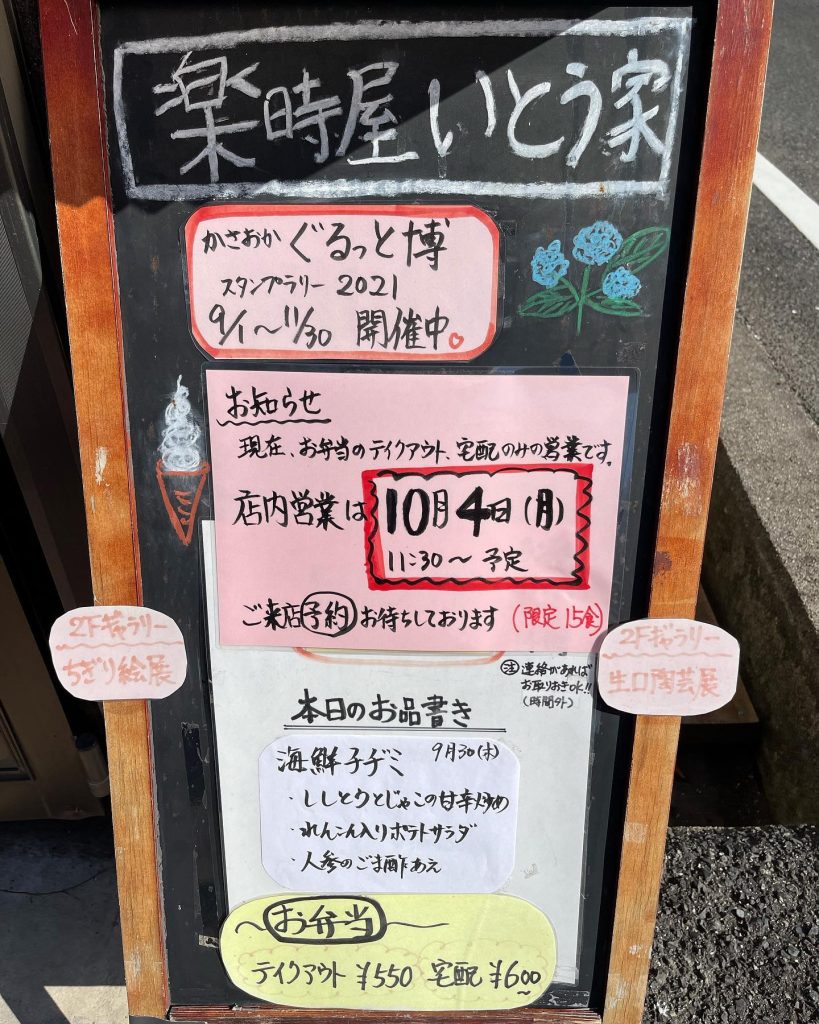 楽時屋いとう家
かさおか ぐるっと博
スタンプラリー 2021
9/1～11/30 開催中
お知らせ
現在、お弁当のテイクアウト、宅配のみの営業です。
店内営業は 10月4日(月)
11:30～ 予定
ご来店予約お待ちしております (限定15食)
2Fギャラリー
ちぎり絵展
2Fギャラリー
生口陶芸展
注 連絡があれば
お取りおきOK!!
(時間外)
本日のお品書き
海鮮チヂミ 9月30(木)
・ししとうとじゃこの甘辛炒め
・れんこん入りポテトサラダ
・人参のごま酢あえ
～お弁当～
テイクアウト ¥550 宅配 ¥600～